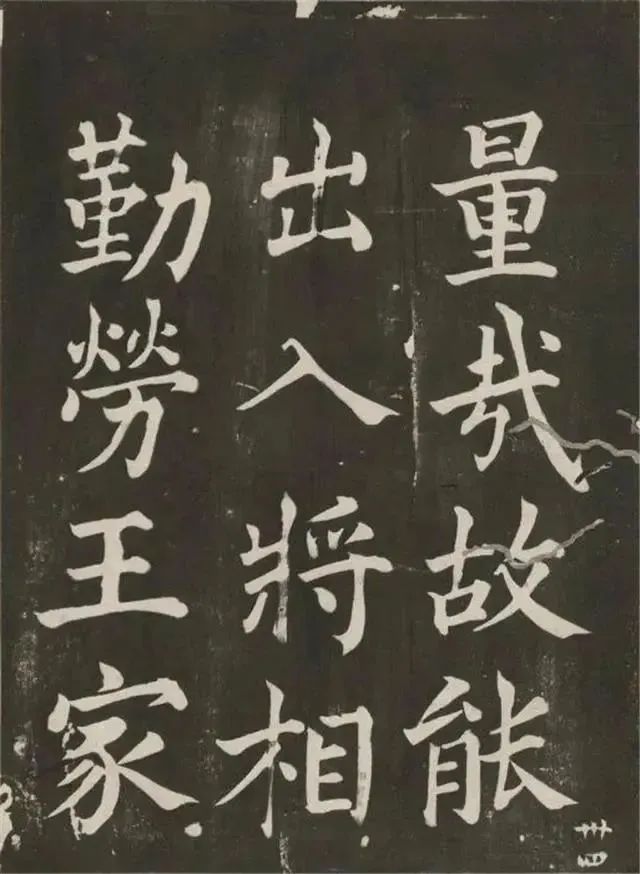 量哉故能
出入將相
勤勞王家